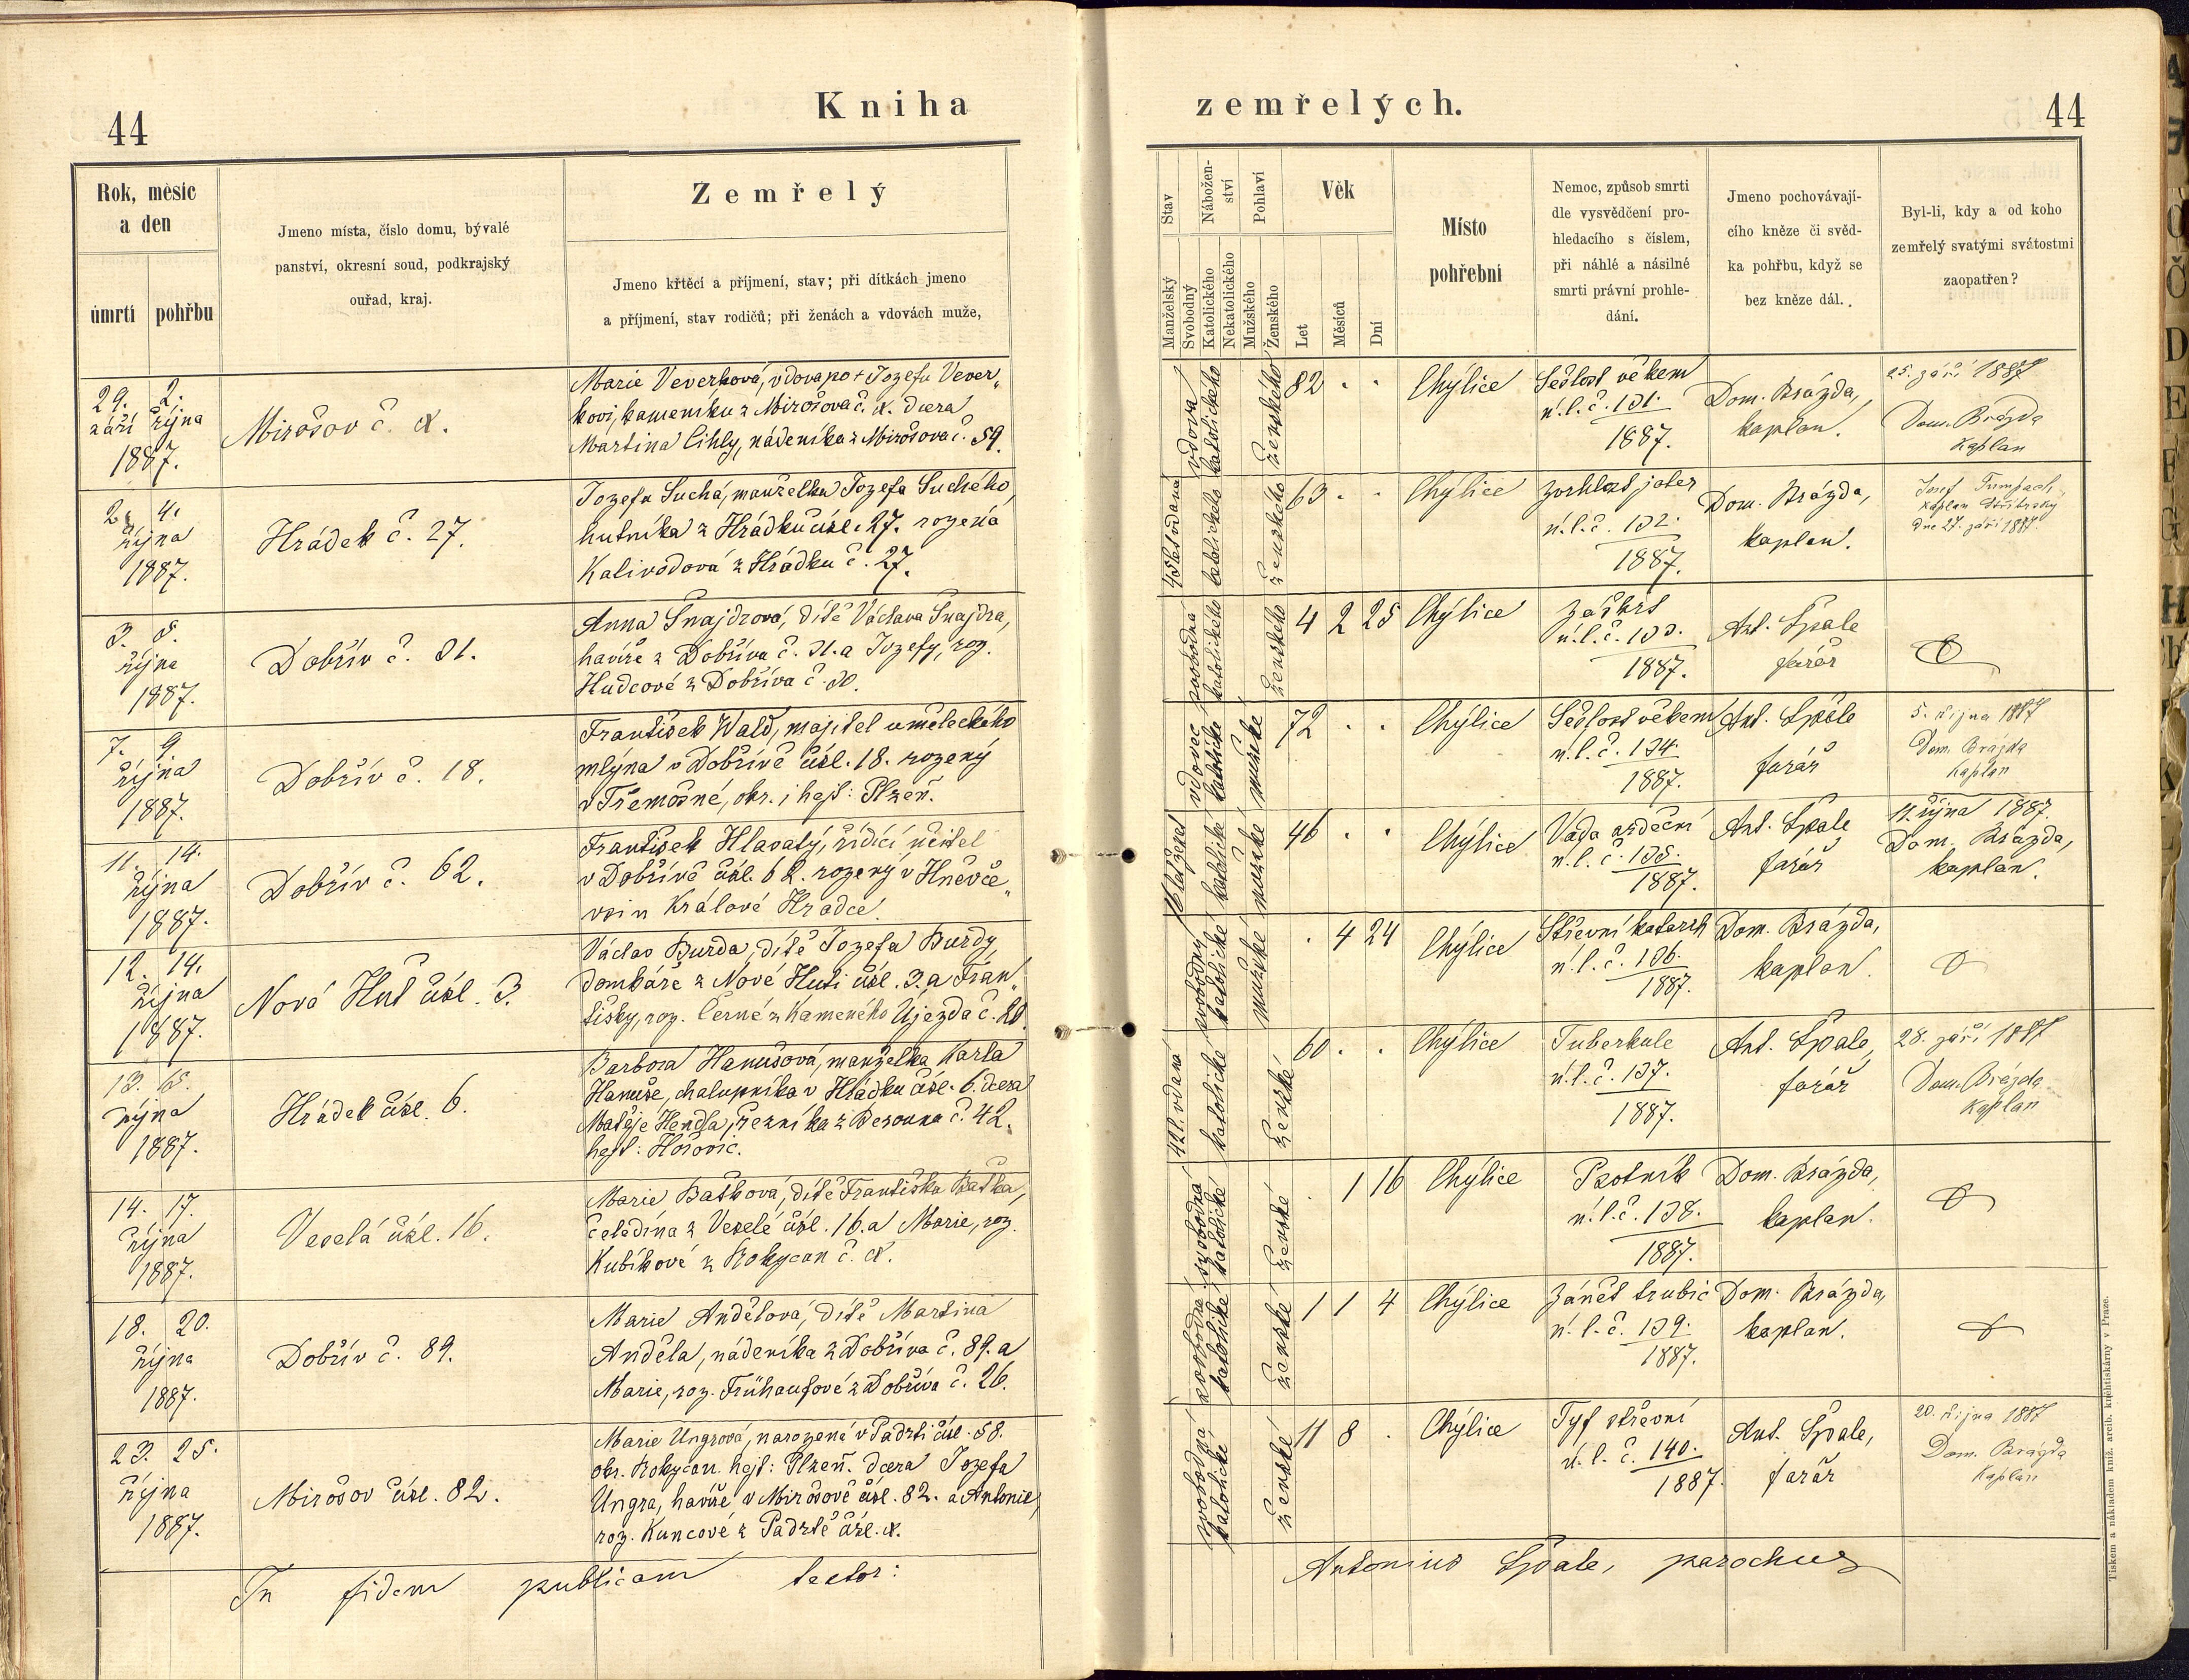 44
Kniha
zemřelých.
44
Rok, měsíc
a den
úmrtí
pohřbu
Jmeno místa, číslo domu, bývalé
panství, okresní soud, podkrajský
ouřad, kraj.
Zemřelý
Jmeno křtěcí a příjmení, stav; při dítkách jmeno
a příjmení, stav rodičů; při ženách a vdovách muže,
Stav
Manželský
Svobodný
Nábožen-
ství
Katolického
Nekatolického
Pohlaví
Mužského
Ženského
Věk
Let
Měsíců
Dní
Místo
pohřební
Nemoc, způsob smrti
dle vysvědčení pro-
hledacího s číslem,
při náhlé a násilné
smrti právní prohle-
dání.
Jmeno pochovávají-
cího kněze či svěd-
ka pohřbu, když se
bez kněze dál.
Byl-li, kdy a od koho
zemřelý svatými svátostmi
zaopatřen?
29. 2.
září října
1887.
Mirošov č.
Marie Veverková, vdova po † Jozefu Vever„
kovi, kameníku z Mirošova č. dcera
Martina Cihly, nádeníka z Mirošova č. 59.
vdova
katolického
ženského
82 . .
Chýlice
Sešlost věkem
n. l. č. 131.
1887.
Dom. Brázda,
kaplan.
25. září 1887
Dom. Brázda
Kaplan
2. 4.
října
1887.
Hrádek č. 27.
Jozefa Suchá, manželka Jozefa Suchého,
hutníka z Hrádku čísl. 27. rozená
Kalivodová z Hrádku č. 27.
vdaná
katolického
ženského
63 . .
Chýlice
n. l. č. 132.
1887.
Dom. Brázda,
kaplan.
Josef Tumpach
Kaplan Stříbrský
dne 27. září 1887
3. 5.
října
1887.
Dobřív č. 31.
Anna Šnajdrová, dítě Václava Šnajdra,
havíře z Dobříva č. 31. a Jozefy, roz.
Hudcové z Dobříva č. 30.
svobodná
katolického
ženského
4 2 25
Chýlice
Záškrt
n. l. č. 133.
1887.
Ant. Špale
farář
7. 9.
října
1887.
Dobřív č. 18.
František Wald, majitel uměleckého
mlýna v Dobřívě čísl. 18. rozený
v Třemošné, okr. i hejt: Plzeň.
vdovec
katolické
mužské
72 . .
Chýlice
Sešlost věkem
n. l. č. 134.
1887.
Ant. Špale
farář
5. října 1887
Dom. Brázda
Kaplan
11. 14.
října
1887.
Dobřív č. 62.
František Hlavatý, řídící učitel
v Dobřívě čísl. 62. rozený v Hněvče„
vsi u Králové Hradce.
katolické
mužské
46 . .
Chýlice
Vada srdeční
n. l. č. 135.
1887.
Ant. Špale
farář
11. října 1887.
Dom. Brázda,
kaplan.
12. 14.
října
1887.
Nová Huť čísl. 3.
Václav Burda, dítě Jozefa Burdy,
dombáře z Nové Huti čísl. 3. a Fran„
tišky, roz. Černé z Kameného Újezda č. 20.
svobodný
katolické
mužské
. 4 24
Chýlice
Střevní katarrh
n. l. č. 136.
1887.
Dom. Brázda,
kaplan.
13. 15.
října
1887.
Hrádek čísl. 6.
Barbora Hanušová, manželka Karla
Hanuše, chalupníka v Hrádku čísl. 6. dcera
Matěje Hendla, řezníka z Berouna č. 42.
hejt: Hořovic.
42 l. vdaná
katolické
ženské
60 . .
Chýlice
Tuberkule
n. l. č. 137.
1887.
Ant. Špale,
farář
28. září 1887
Dom. Brázda
Kaplan
14. 17.
října
1887.
Veselá čísl. 16.
Marie Baťková, dítě Františka Baťka,
čeledína z Veselé čísl. 16. a Marie, roz.
Kubíkové z Rokycan č.
svobodná
katolické
ženské
. 1 16
Chýlice
Psotník
n. l. č. 138.
1887.
Dom. Brázda,
kaplan.
18. 20.
října
1887.
Dobřív č. 89.
Marie Andělová, dítě Martina
Anděla, nádeníka z Dobříva č. 89. a
Marie, roz. Frühaufové z Dobříva č. 26.
svobodné
katolické
ženské
1 1 4
Chýlice
Zánět trubic
n. l. č. 139.
1887.
Dom. Brázda,
kaplan.
23. 25.
října
1887.
Mirošov čísl. 82.
Marie Ungrová, narozená v Padrti čísl. 58.
okr. Rokycan. hejt: Plzeň. dcera Jozefa
Ungra, havíře v Mirošově čísl. 82. a Antonie,
roz. Kuncové z Padrtě čísl.
svobodná
katolické
ženské
11 8 .
Chýlice
Tyf střevní
n. l. č. 140.
1887.
Ant. Špale,
farář
20. října 1887
Dom. Brázda
Kaplan
In fidem publicam testor:
Antonius Špale, parochus
Tiskem a nákladem kníž. arcib. knihtiskárny v Praze.